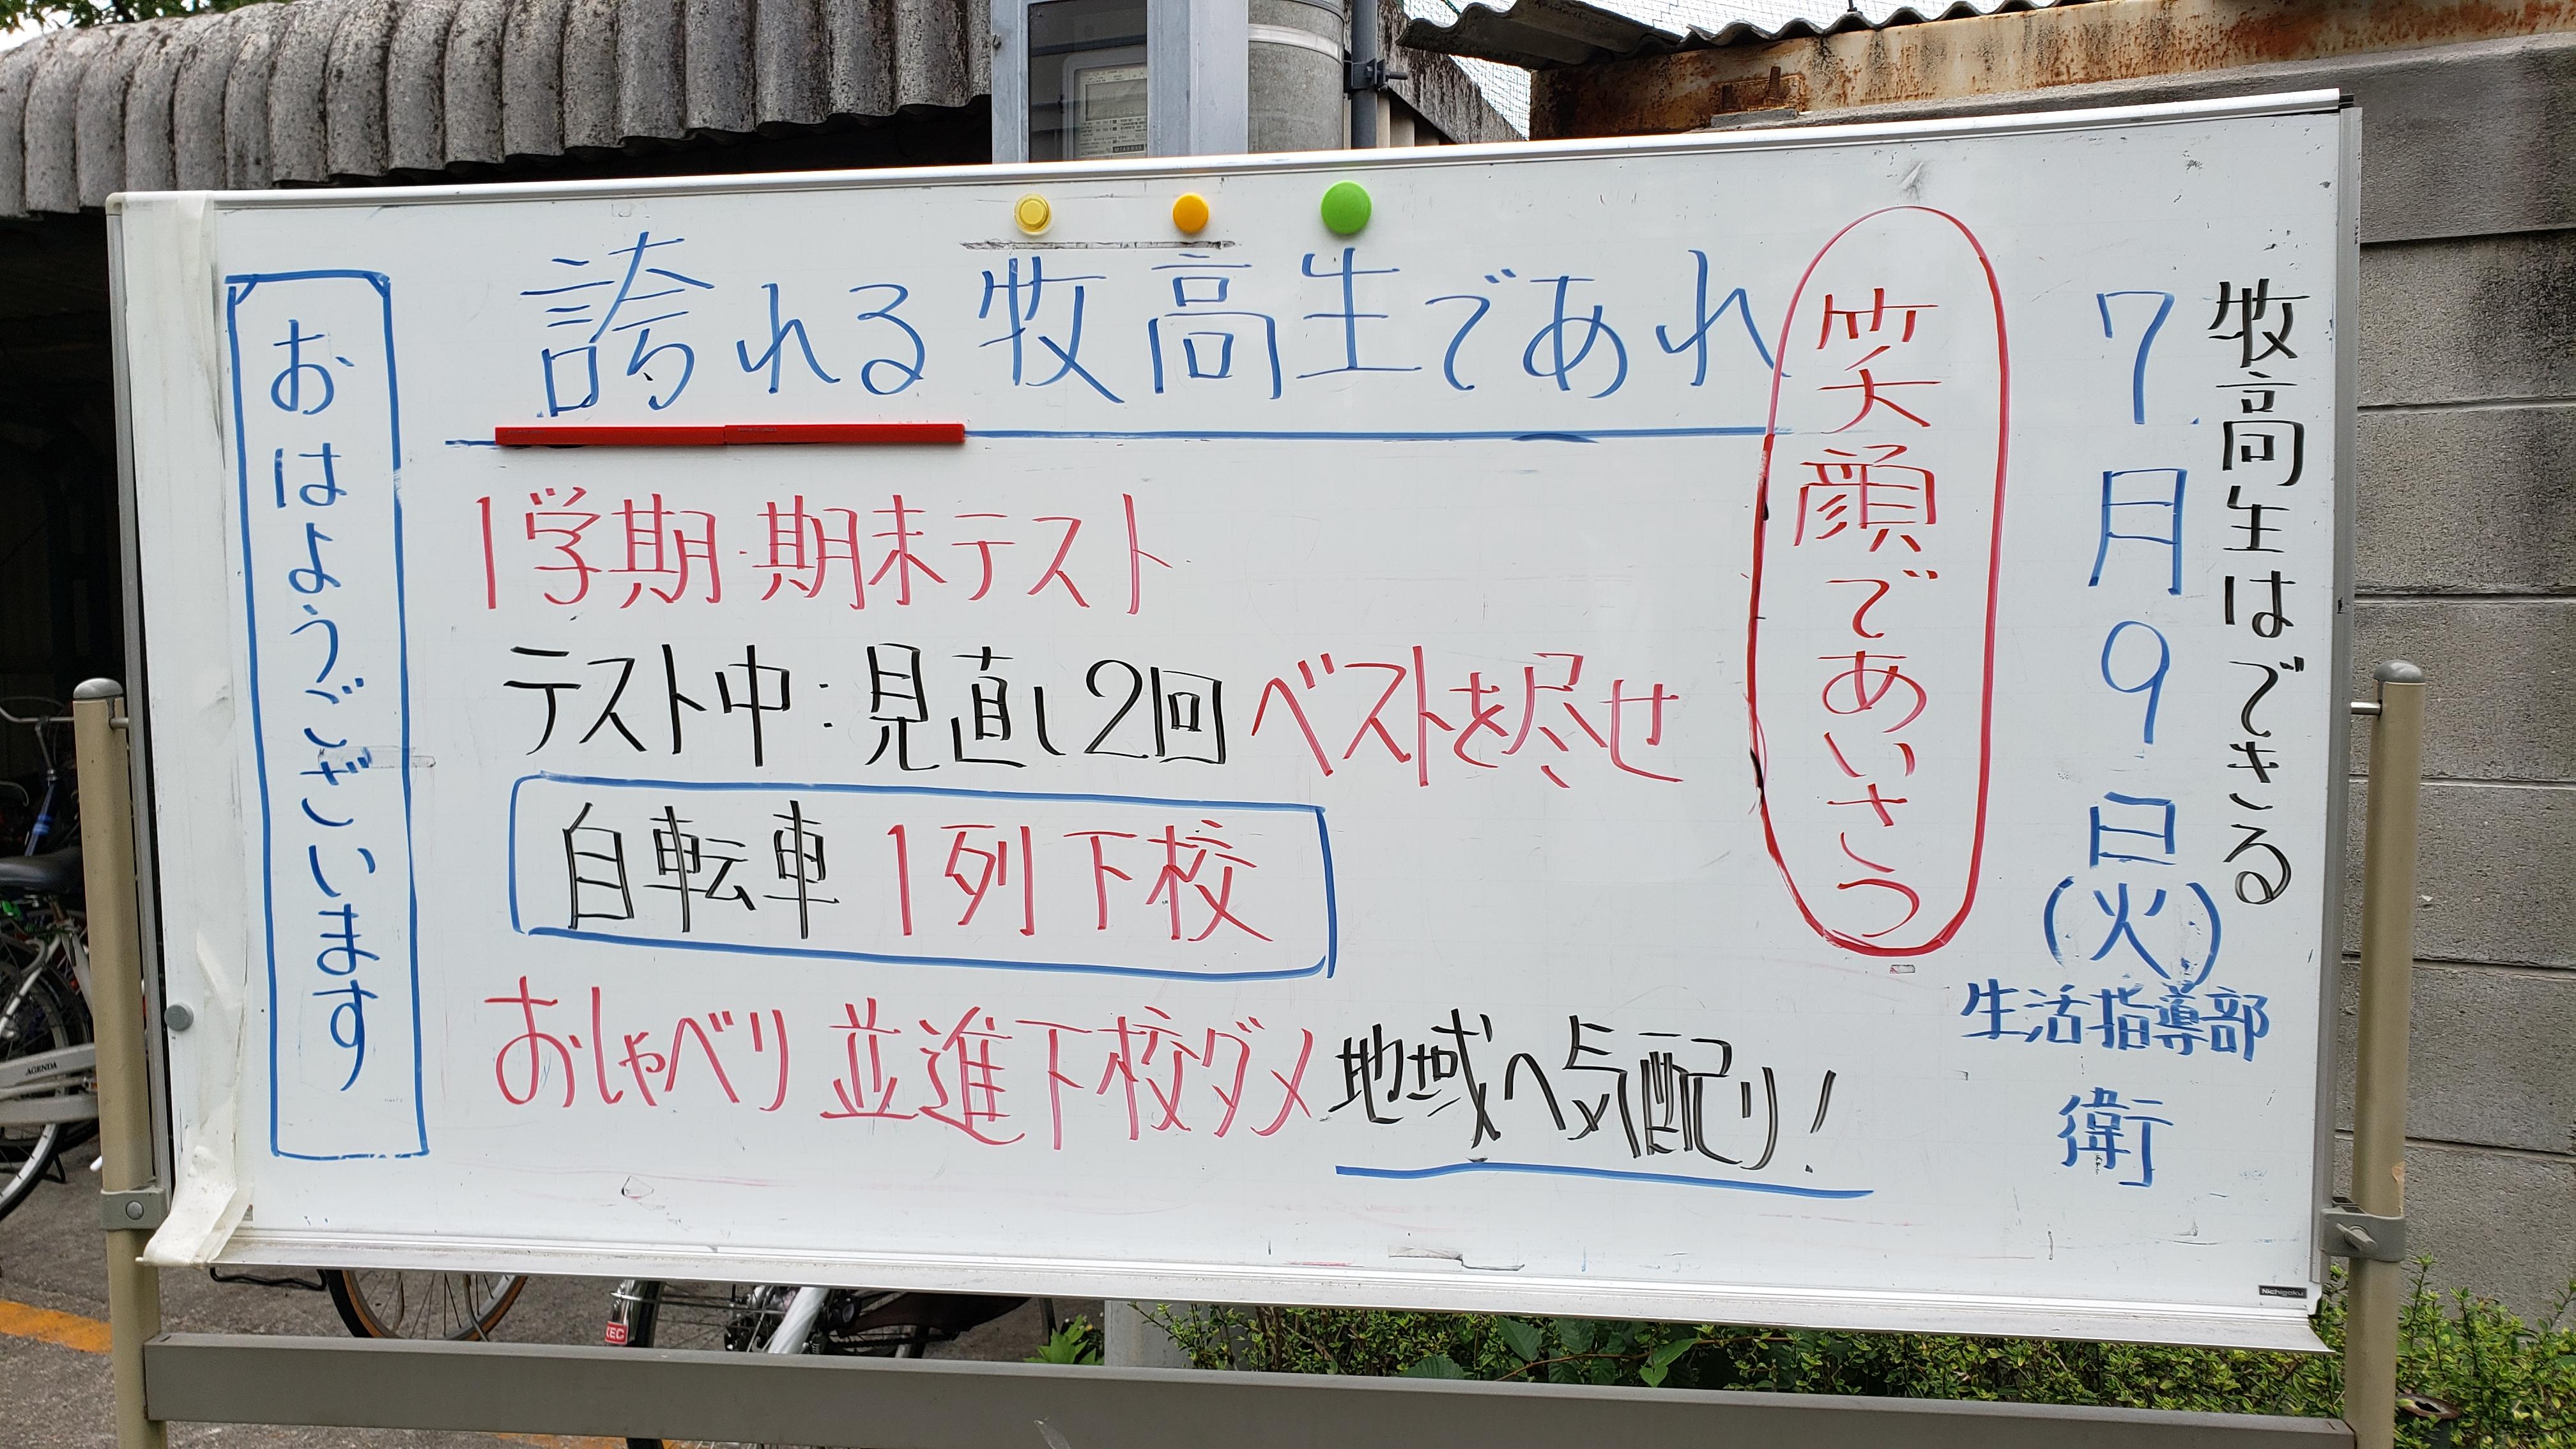 牧高生はできる
7月9日(火)
生活指導部
衛
笑顔であいさつ
誇れる牧高生であれ
1学期 期末テスト
テスト中:見直し2回 ベストを尽せ
自転車 1列下校
おしゃべり 並進下校ダメ 地域へ気配り!
おはようございます
Nichigaku
AGENDA